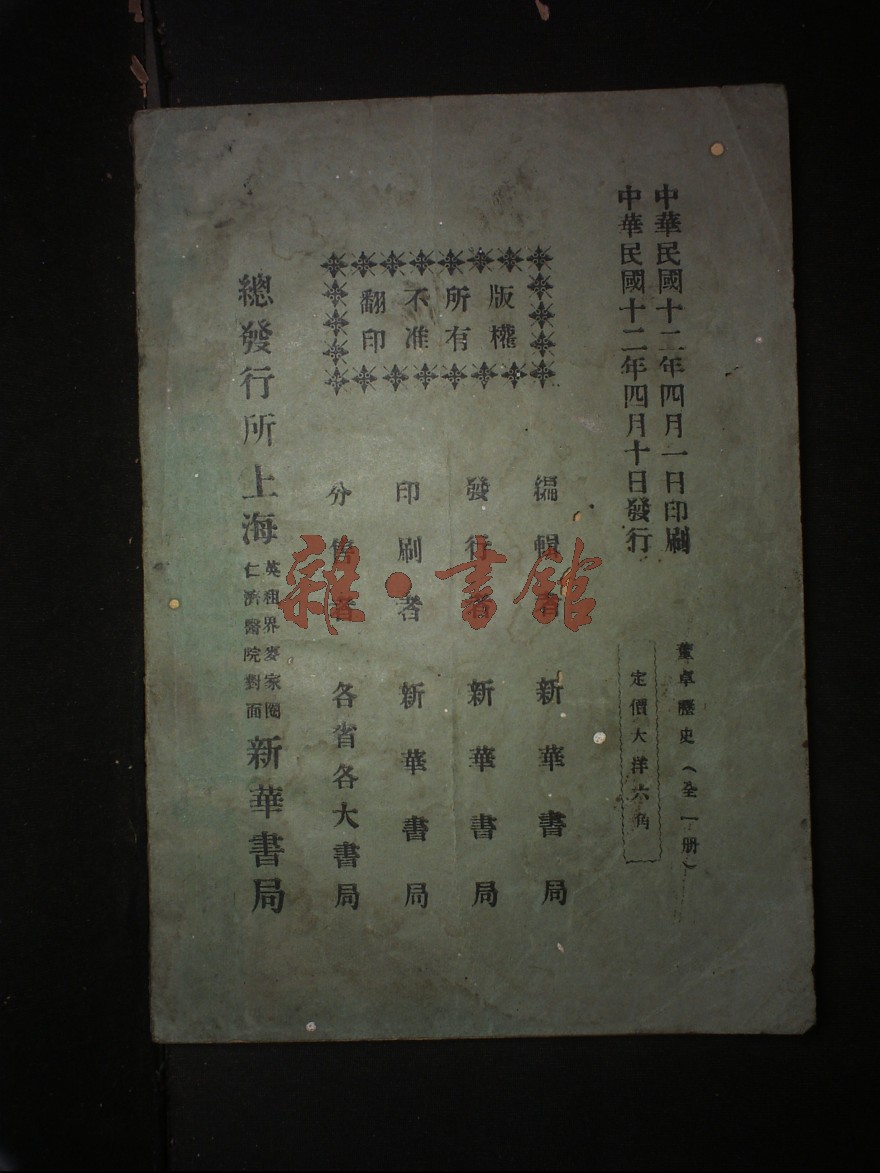 中華民國十二年四月一日印刷
中華民國十二年四月十日發行
董卓歷史（全一册）
定價大洋六角
版權
所有
不准
翻印
編輯者 新華書局
發行者 新華書局
印刷者 新華書局
分售者 各省各大書局
總發行所上海
英租界麥家圈
仁濟醫院對面
新華書局
雜·書館